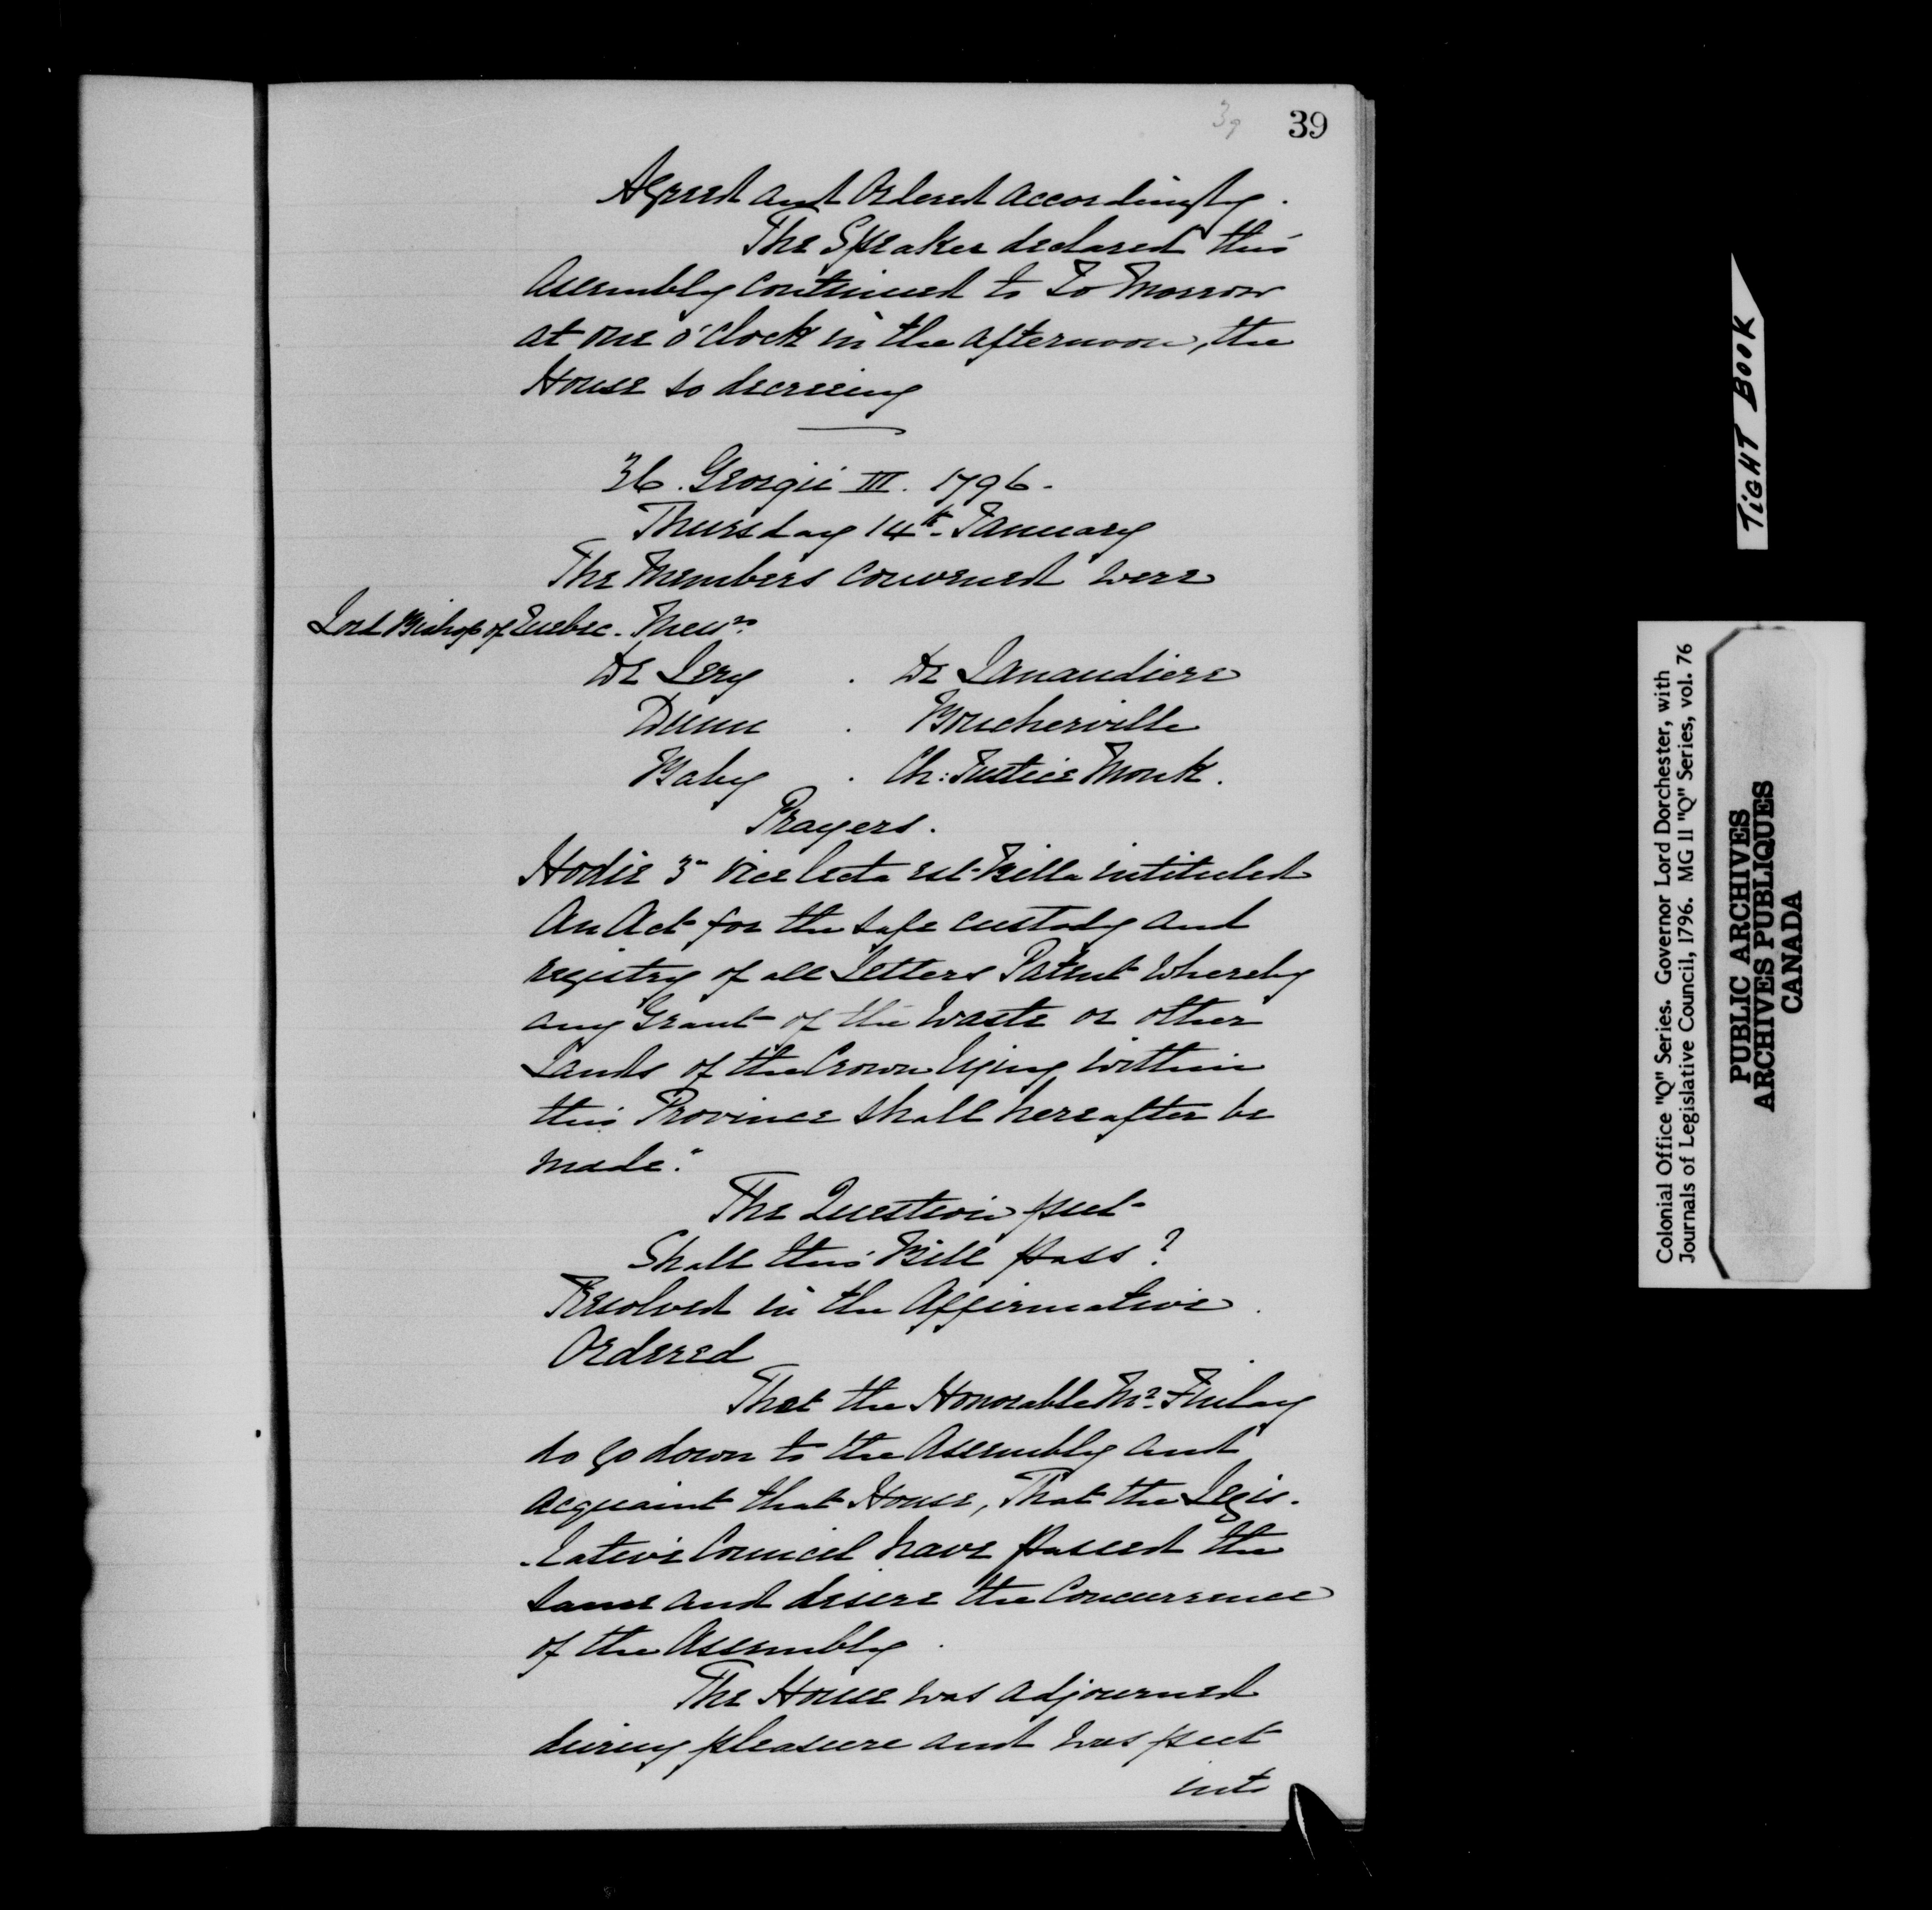 39
39
Agreed and Ordered accordingly.
The Speaker declared this
Assembly continued to To Morrow
at one o'Clock in the afternoon, the
House so decreeing
36. Georgii III. 1796.
Thursday 14th. January
The Members convened were
Lord Bishop of Quebec. Messrs.
De Lery . De Lanaudiere
Dunn . Boucherville
Baby . Ch: Justice Monk.
Prayers.
Hodie 3a vice lecta est Billa intituled
An Act for the safe custody and
registry of all Letters Patent whereby
any Grant of the Waste or other
Lands of the Crown lying within
this Province shall hereafter be
made."
The Question put
Shall this Bill pass?
Resolved in the Affirmative.
Ordered
That the Honorable Mr. Finlay
do go down to the Assembly and
acquaint that House, That the Legis-
-lative Council have passed the
same and desire the Concurrence
of the Assembly.
The House was adjourned
during pleasure and was put
into
TIGHT BOOK
Colonial Office "Q" Series. Governor Lord Dorchester, with
Journals of Legislative Council, 1796. MG 11 "Q" Series, vol. 76
PUBLIC ARCHIVES
ARCHIVES PUBLIQUES
CANADA